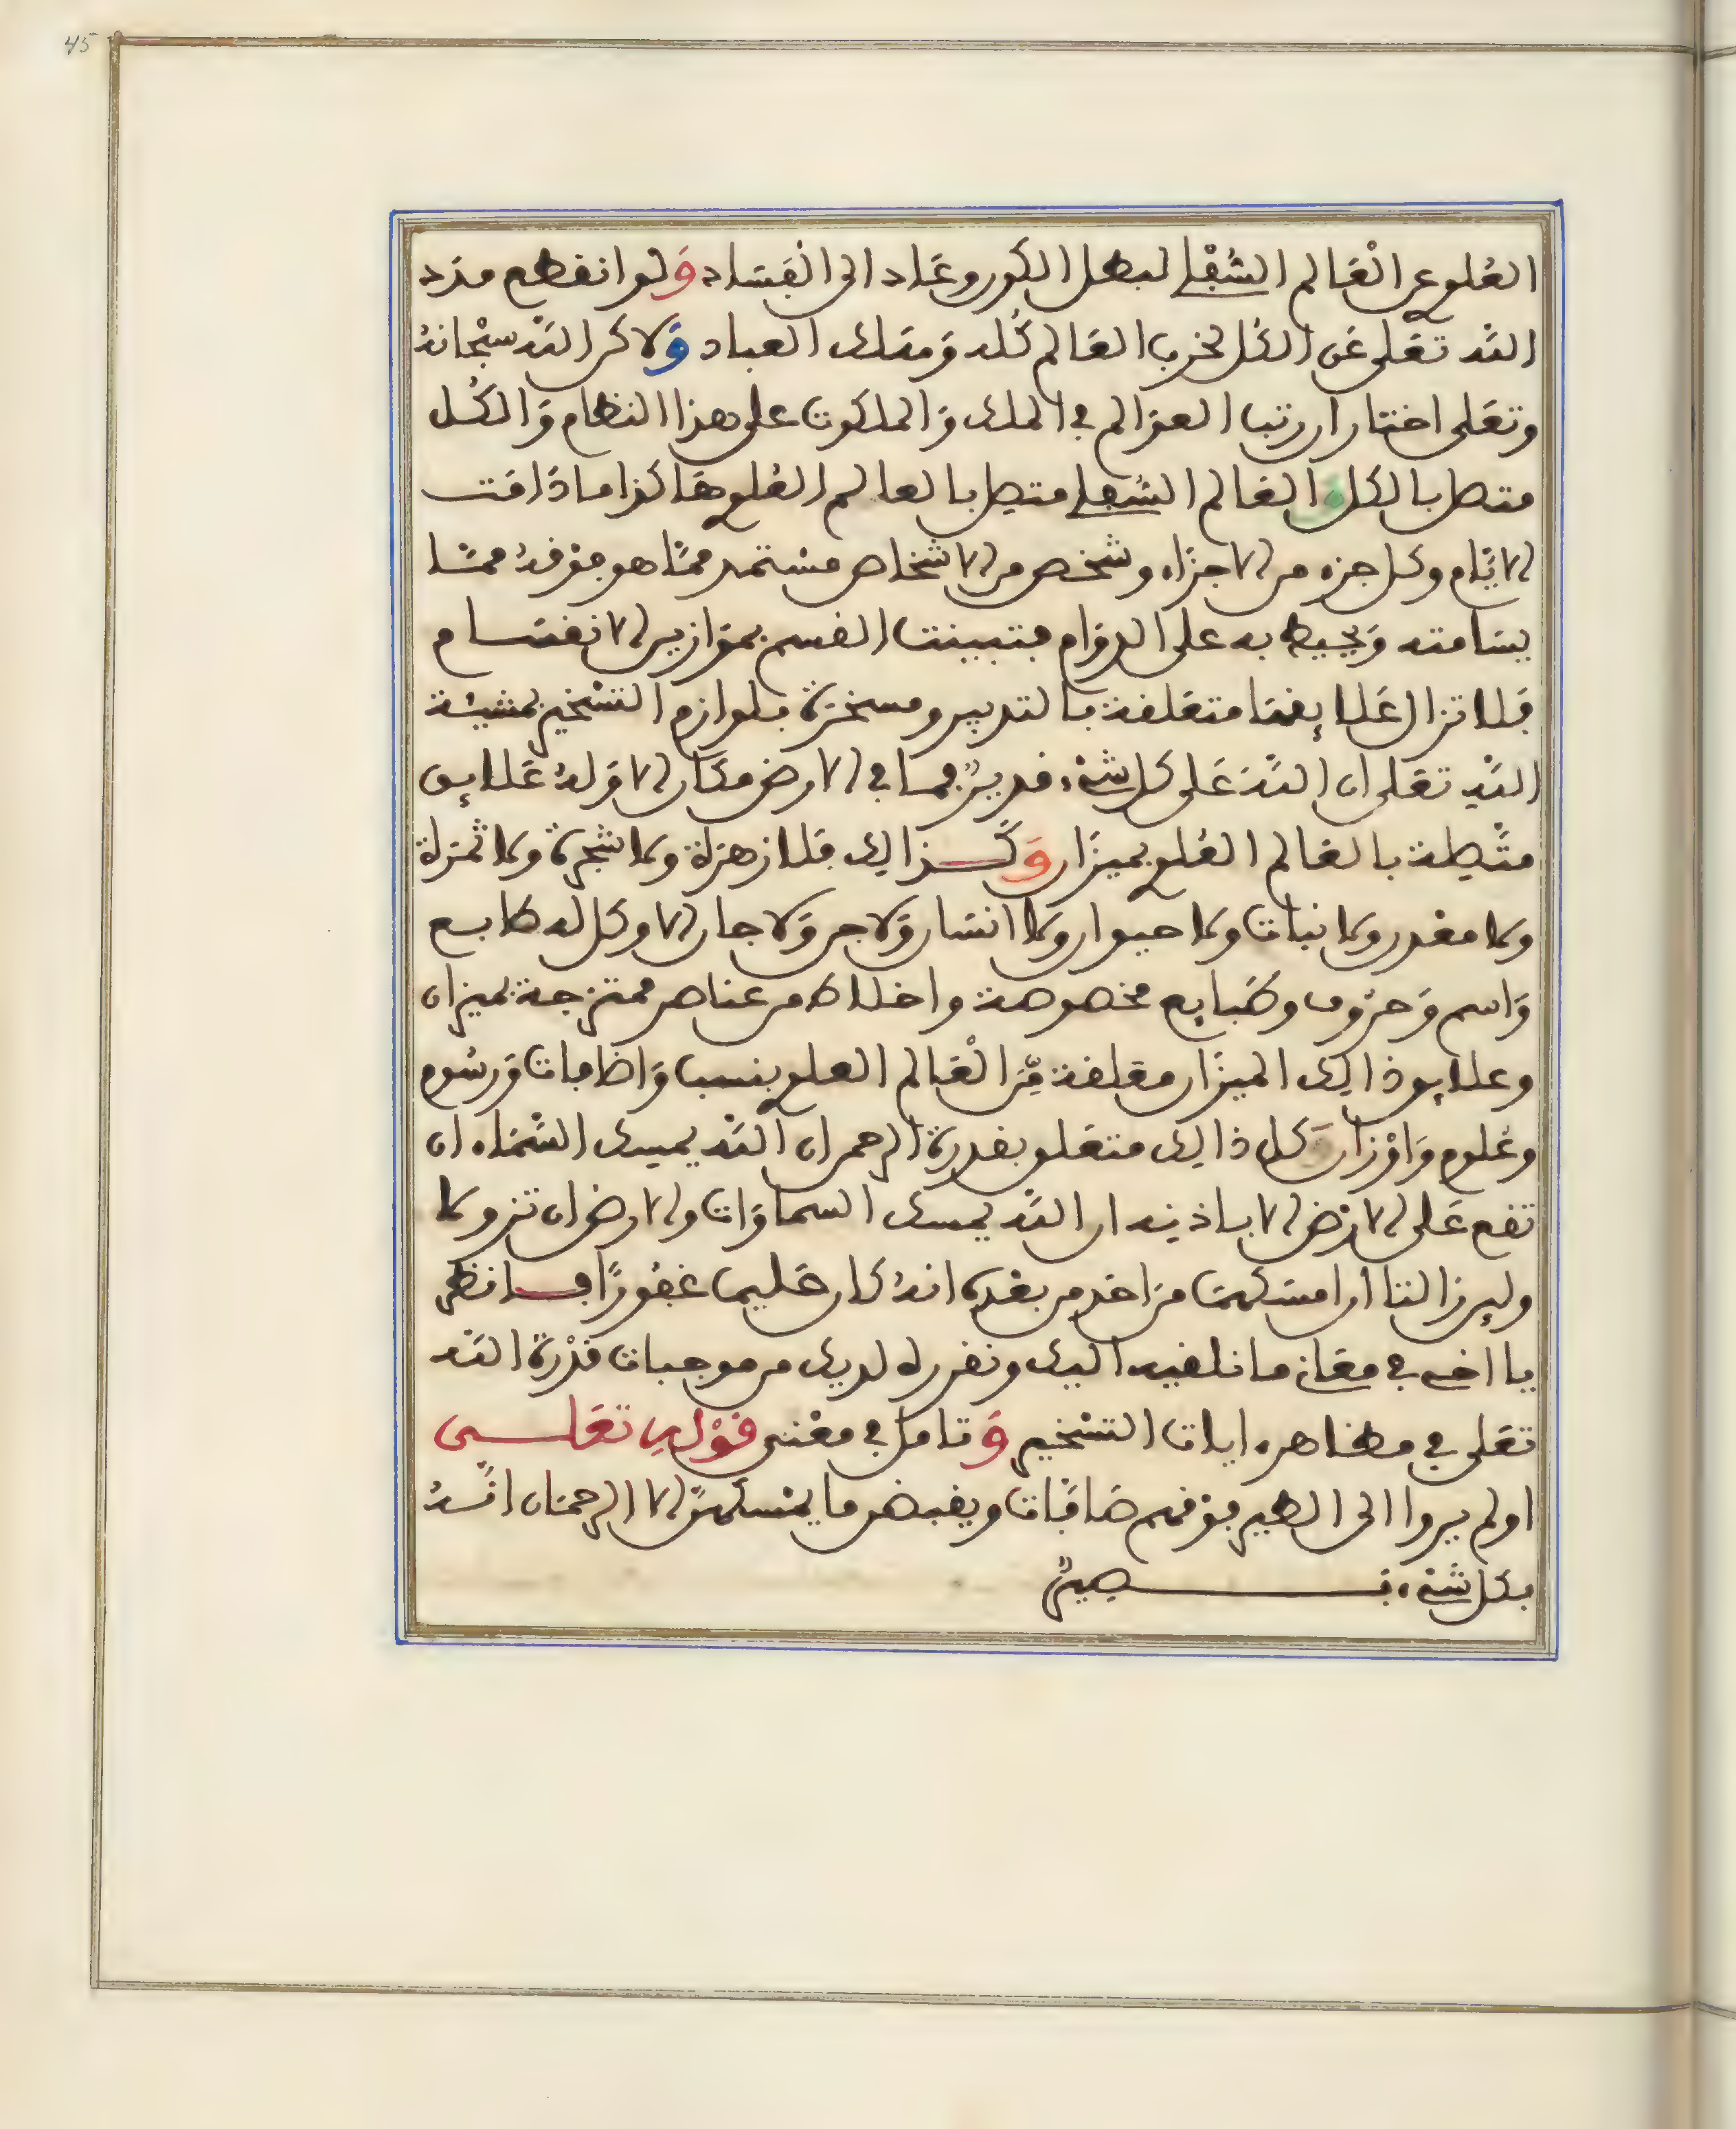 45
العُلوي عن الْعَالم السُّفْلي لبطل الكون وعَاد الى الْفسَاد وَلو انقطع مَدَد
الله تعَلى عَن الكُل لخرب العَالم كُله وَهَلك العباد وَلاكن الله سبْحَانهُ
وتعَلى اختار ان رتب العوَالم في الملك وَالملكوت على هذا النظام وَالكُل
متصل بالكل العَالم السُّفلي متصل بالعالم العُلوي هَاكذا ما دَامت
الايَّام وكل جزء من الاجزَاء وشخص من الاشخاص مسْتمد ممَّا هو فوْقهُ ممَّا
يسَامته وَيحيط به على الدوَام فتبينت القسم بموَازين الانقسَام
فلا تزال عَلايقهَا متعَلقة بالتدبير ومسخرَة بلوازم التسْخير بمشيئة
اللهِ تعَلى ان اللهَ عَلى كل شيْء قديرٌ فما في الارض مكَان الا وَلهُ عَلايق
متَّصِلة بالعَالم العُلوي بميزَان وَكَذالك فلا زهرَة ولا شجرَة ولا ثمرَة
ولا معْدن ولا نبات ولا حيوان ولا انسَان وَلا جن وَلا جان الا وكل له طابع
وَاسم وَحرُوف وطَبايع مخصوصة واخلاط من عناصر ممتزجة بميزان
وعلايق ذالك الميزَان معَلقة مِّن الْعَالم العلوي بنسب وَاضافات وَرسُوم
وعُلوم وَاوْزان كل ذالك متعَلق بقدرة الرحمان الله يمسك السَّمَاء ان
تقع عَلى الارْض الا باذنه ان الله يمسك السماوَات والارض ان تزولا
ولين زالتا ان امسَكهمَا من احَد من بعْده انهُ كان حَليما غفُورًا فانظر
يا اخي في معَاني ما نلقيه اليك ونقرره لديك من موجبات قدْرة الله
تعَلى في مظاهره ايات التسْخير وَتامل في معْنى قوْلهِ تعَلى
اولم يروا الى الطير فوْقهم صَافَّات ويقبضن ما يمْسكهنَّ الا الرحمَان انَّهُ
بكل شيْء بصيرٌ